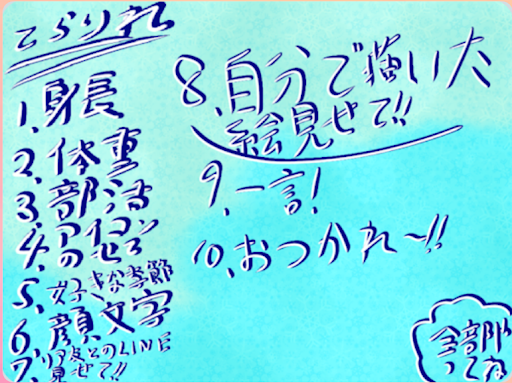 こらりれ
1.身長
2.体重
3.部活
4.
5.好きな季節
6.顔文字
7.リア友とのLINE
見せて!!
8.自分で描いた
絵見せて!!
9.一言!
10.おつかれ〜!!
全部
ってね